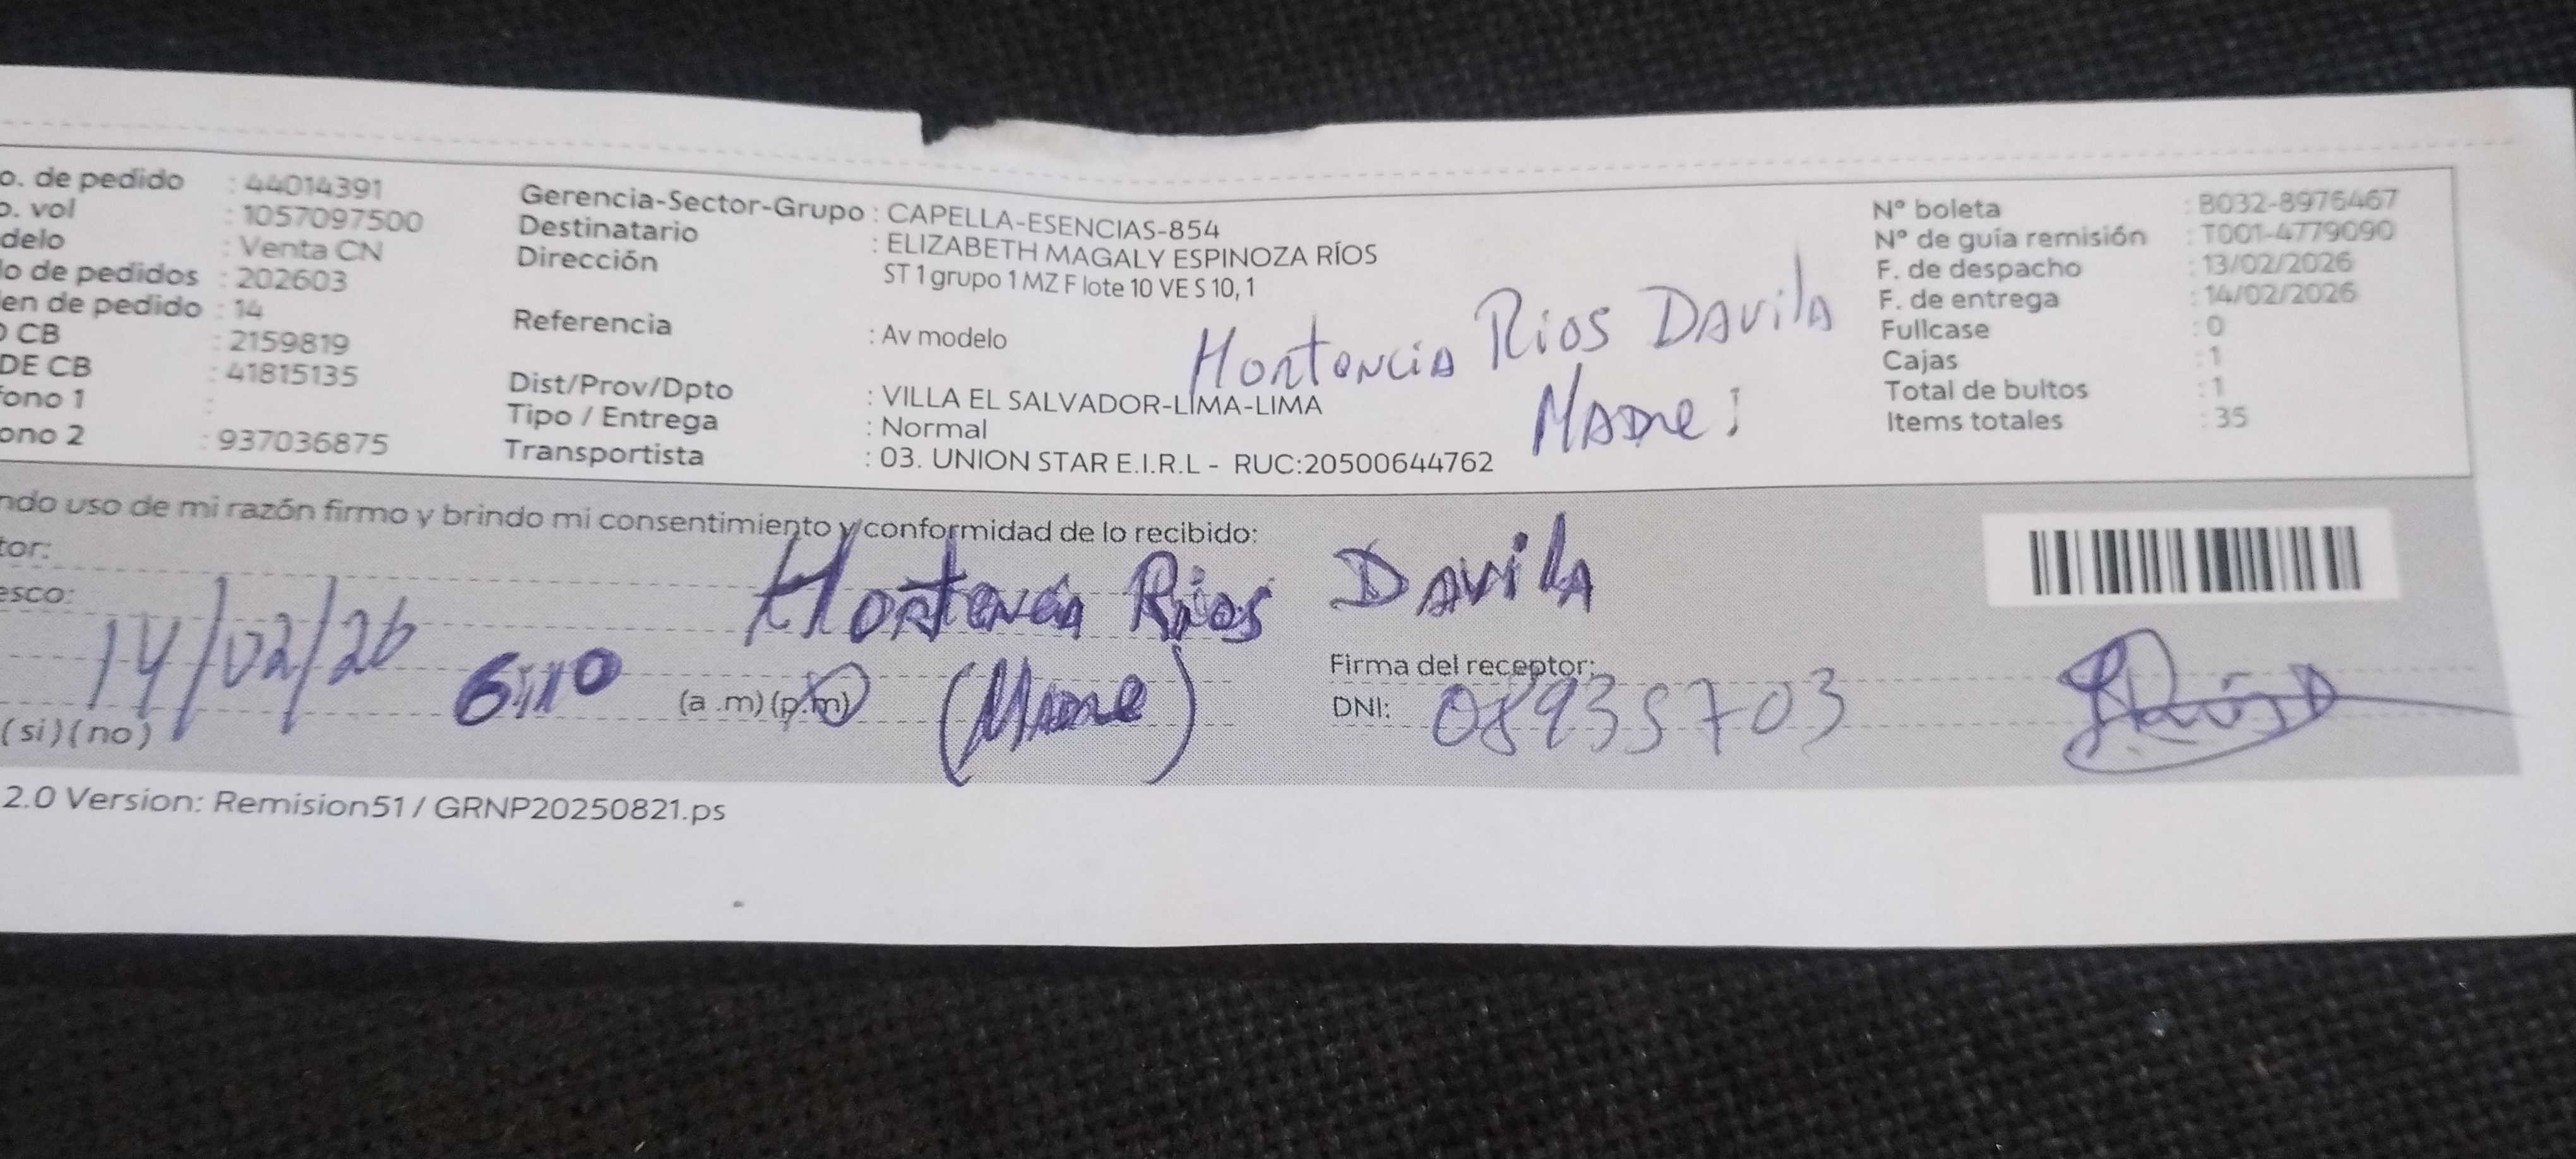 o. de pedido : 44014391
o. vol : 1057097500
delo : Venta CN
lo de pedidos : 202603
en de pedido : 14
O CB : 2159819
DE CB : 41815135
fono 1 :
ono 2 : 937036875
Gerencia-Sector-Grupo : CAPELLA-ESENCIAS-854
Destinatario : ELIZABETH MAGALY ESPINOZA RÍOS
Dirección ST 1 grupo 1 MZ F lote 10 VE S 10, 1
Referencia : Av modelo
Dist/Prov/Dpto : VILLA EL SALVADOR-LIMA-LIMA
Tipo / Entrega : Normal
Transportista : 03. UNION STAR E.I.R.L - RUC:20500644762
Hortencia Rios Davila
Madre
N° boleta : B032-8976467
N° de guía remisión : T001-4779090
F. de despacho : 13/02/2026
F. de entrega : 14/02/2026
Fullcase : 0
Cajas : 1
Total de bultos : 1
Items totales : 35
ndo uso de mi razón firmo y brindo mi consentimiento y conformidad de lo recibido:
tor: Hortencia Rios Davila
esco: (Madre)
14/02/26 6:10 (a .m) (p.m)
(si) (no)
Firma del receptor:
DNI: 08935703
2.0 Version: Remision51 / GRNP20250821.ps